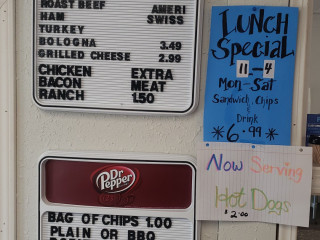 ROAST BEEF AMERI
HAM SWISS
TURKEY
BOLOGNA 3.49
GRILLED CHEESE 2.99
CHICKEN EXTRA
BACON MEAT
RANCH 1.50
LUNCH
Special
11-4
Mon-Sat
Sandwich, Chips
Drink
*6.99*
Dr
Pepper
BAG OF CHIPS 1.00
PLAIN OR BBQ
Now Serving
Hot Dogs
$2.00